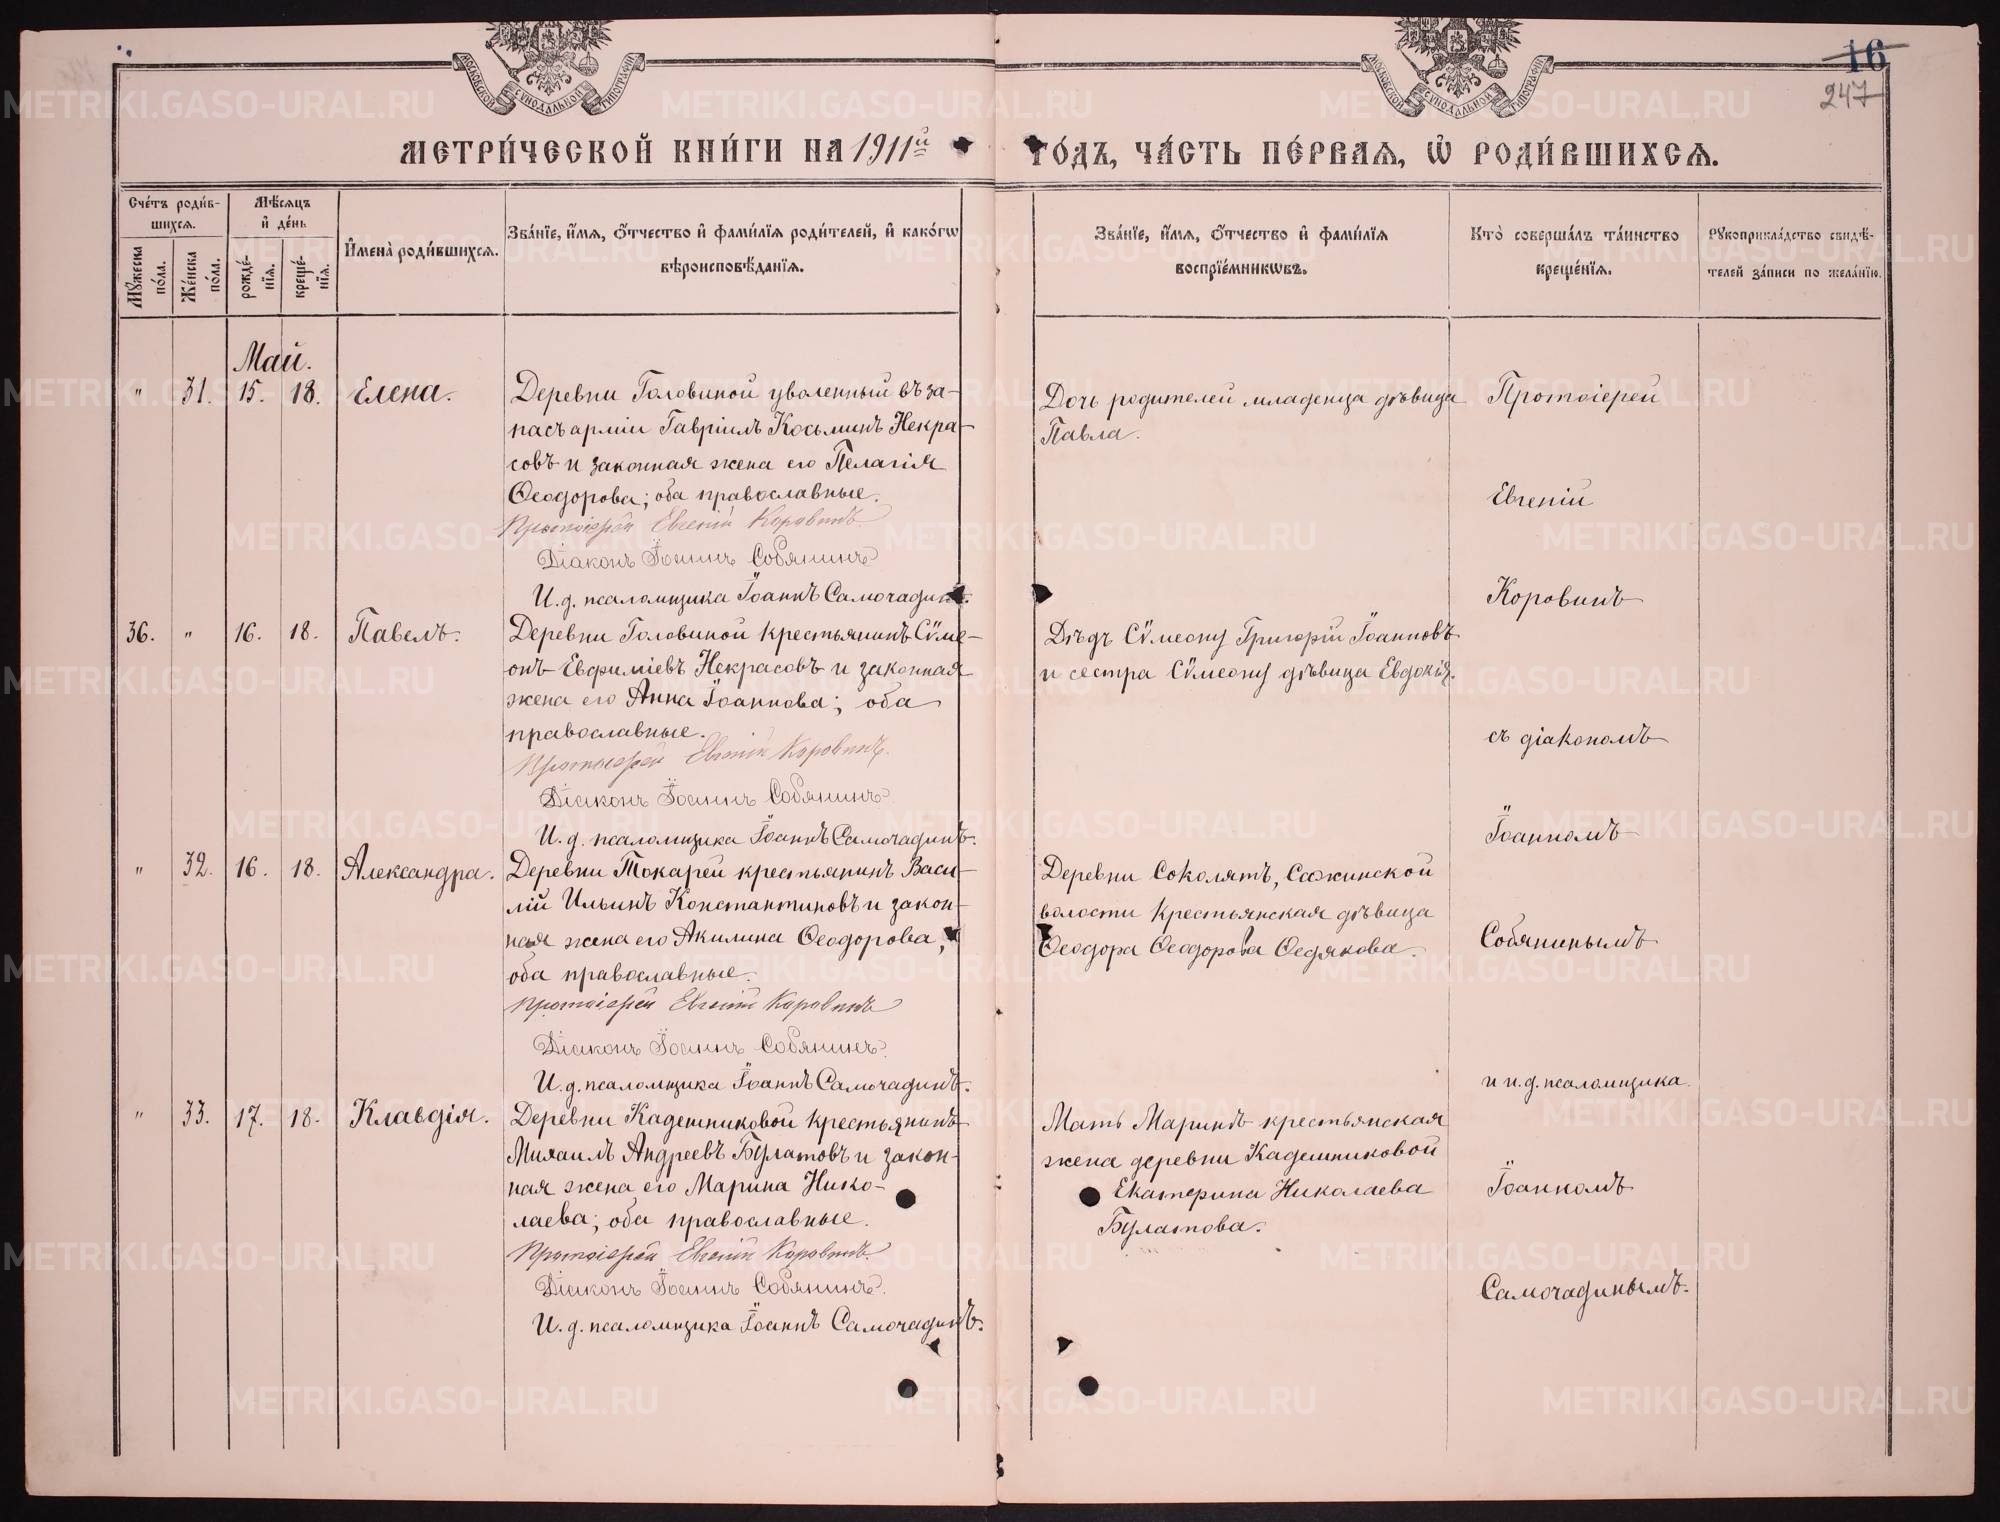 16
247
МОСКОВСКОЙ СѴНОДАЛЬНОЙ ТИПОГРАФІИ
МОСКОВСКОЙ СѴНОДАЛЬНОЙ ТИПОГРАФІИ
МЕТРИ́ЧЕСКОЙ КНИ́ГИ НА 1911й
ГО́ДЪ, ЧА́СТЬ ПЕ́РВАЯ, Ѡ РОДИ́ВШИХСЯ.
Сче́тъ роди́в-
шихся.
Мѣ́сяцъ
и де́нь
Мꙋ́жеска
по́ла.
Же́нска
по́ла.
рожде́-
нїя.
креще́-
нїя.
И҆мена̀ роди́вшихся.
Зва́нїе, и҆́мя, ѻ҆́тчество и҆ фами́лїя роди́телей, и҆ како́гѡ
вѣроисповѣ́данїя.
Зва́нїе, и҆́мя, ѻ҆́тчество и҆ фами́лїя
воспрїе́мникѡвъ.
Кто̀ соверша́лъ та́инство
креще́нїя.
Рꙋкоприкла́дство свидѣ́-
телей за́писи по жела́нїю.
Май.
" 31. 15. 18. Елена.
Деревни Головиной уволенный въ за-
пасъ арміи Гавріилъ Косьминъ Некра-
совъ и законная жена его Пелагія
Ѳеодорова; оба православные.
Протоіерей Евгеній Коровинъ
Діаконъ Іоаннъ Собянинъ
И. д. псаломщика Іоаннъ Самочадинъ.
Дочь родителей младенца дѣвица
Павла.
36. " 16. 18. Павелъ.
Деревни Головиной крестьянинъ Сѵме-
онъ Евфиміевъ Некрасовъ и законная
жена его Анна Іоаннова; оба
православные.
Протоіерей Евгеній Коровинъ.
Діаконъ Іоаннъ Собянинъ
И. д. псаломщика Іоаннъ Самочадинъ.
Дѣдъ Сѵмеону Григорій Іоанновъ
и сестра Сѵмеону дѣвица Евдокія.
" 32. 16. 18. Александра.
Деревни Токарей крестьянинъ Васи-
лій Ильинъ Константиновъ и закон-
ная жена его Акилина Ѳеодорова;
оба православные.
Протоіерей Евгеній Коровинъ
Діаконъ Іоаннъ Собянинъ.
И. д. псаломщика Іоаннъ Самочадинъ.
Деревни Соколятъ, Сажинской
волости крестьянская дѣвица
Ѳеодора Ѳеодорова Ѳедякова.
" 33. 17. 18. Клавдія.
Деревни Кадешниковой крестьянинъ
Михаилъ Андреевъ Булатовъ и закон-
ная жена его Марина Нико-
лаева; оба православные.
Протоіерей Евгеній Коровинъ.
Діаконъ Іоаннъ Собянинъ.
И. д. псаломщика Іоаннъ Самочадинъ.
Мать Маринъ крестьянская
жена деревни Кадешниковой
Екатерина Николаева
Булатова.
Протоіерей
Евгеній
Коровинъ
съ діакономъ
Іоанномъ
Собянинымъ
и и. д. псаломщика
Іоанномъ
Самочадинымъ.